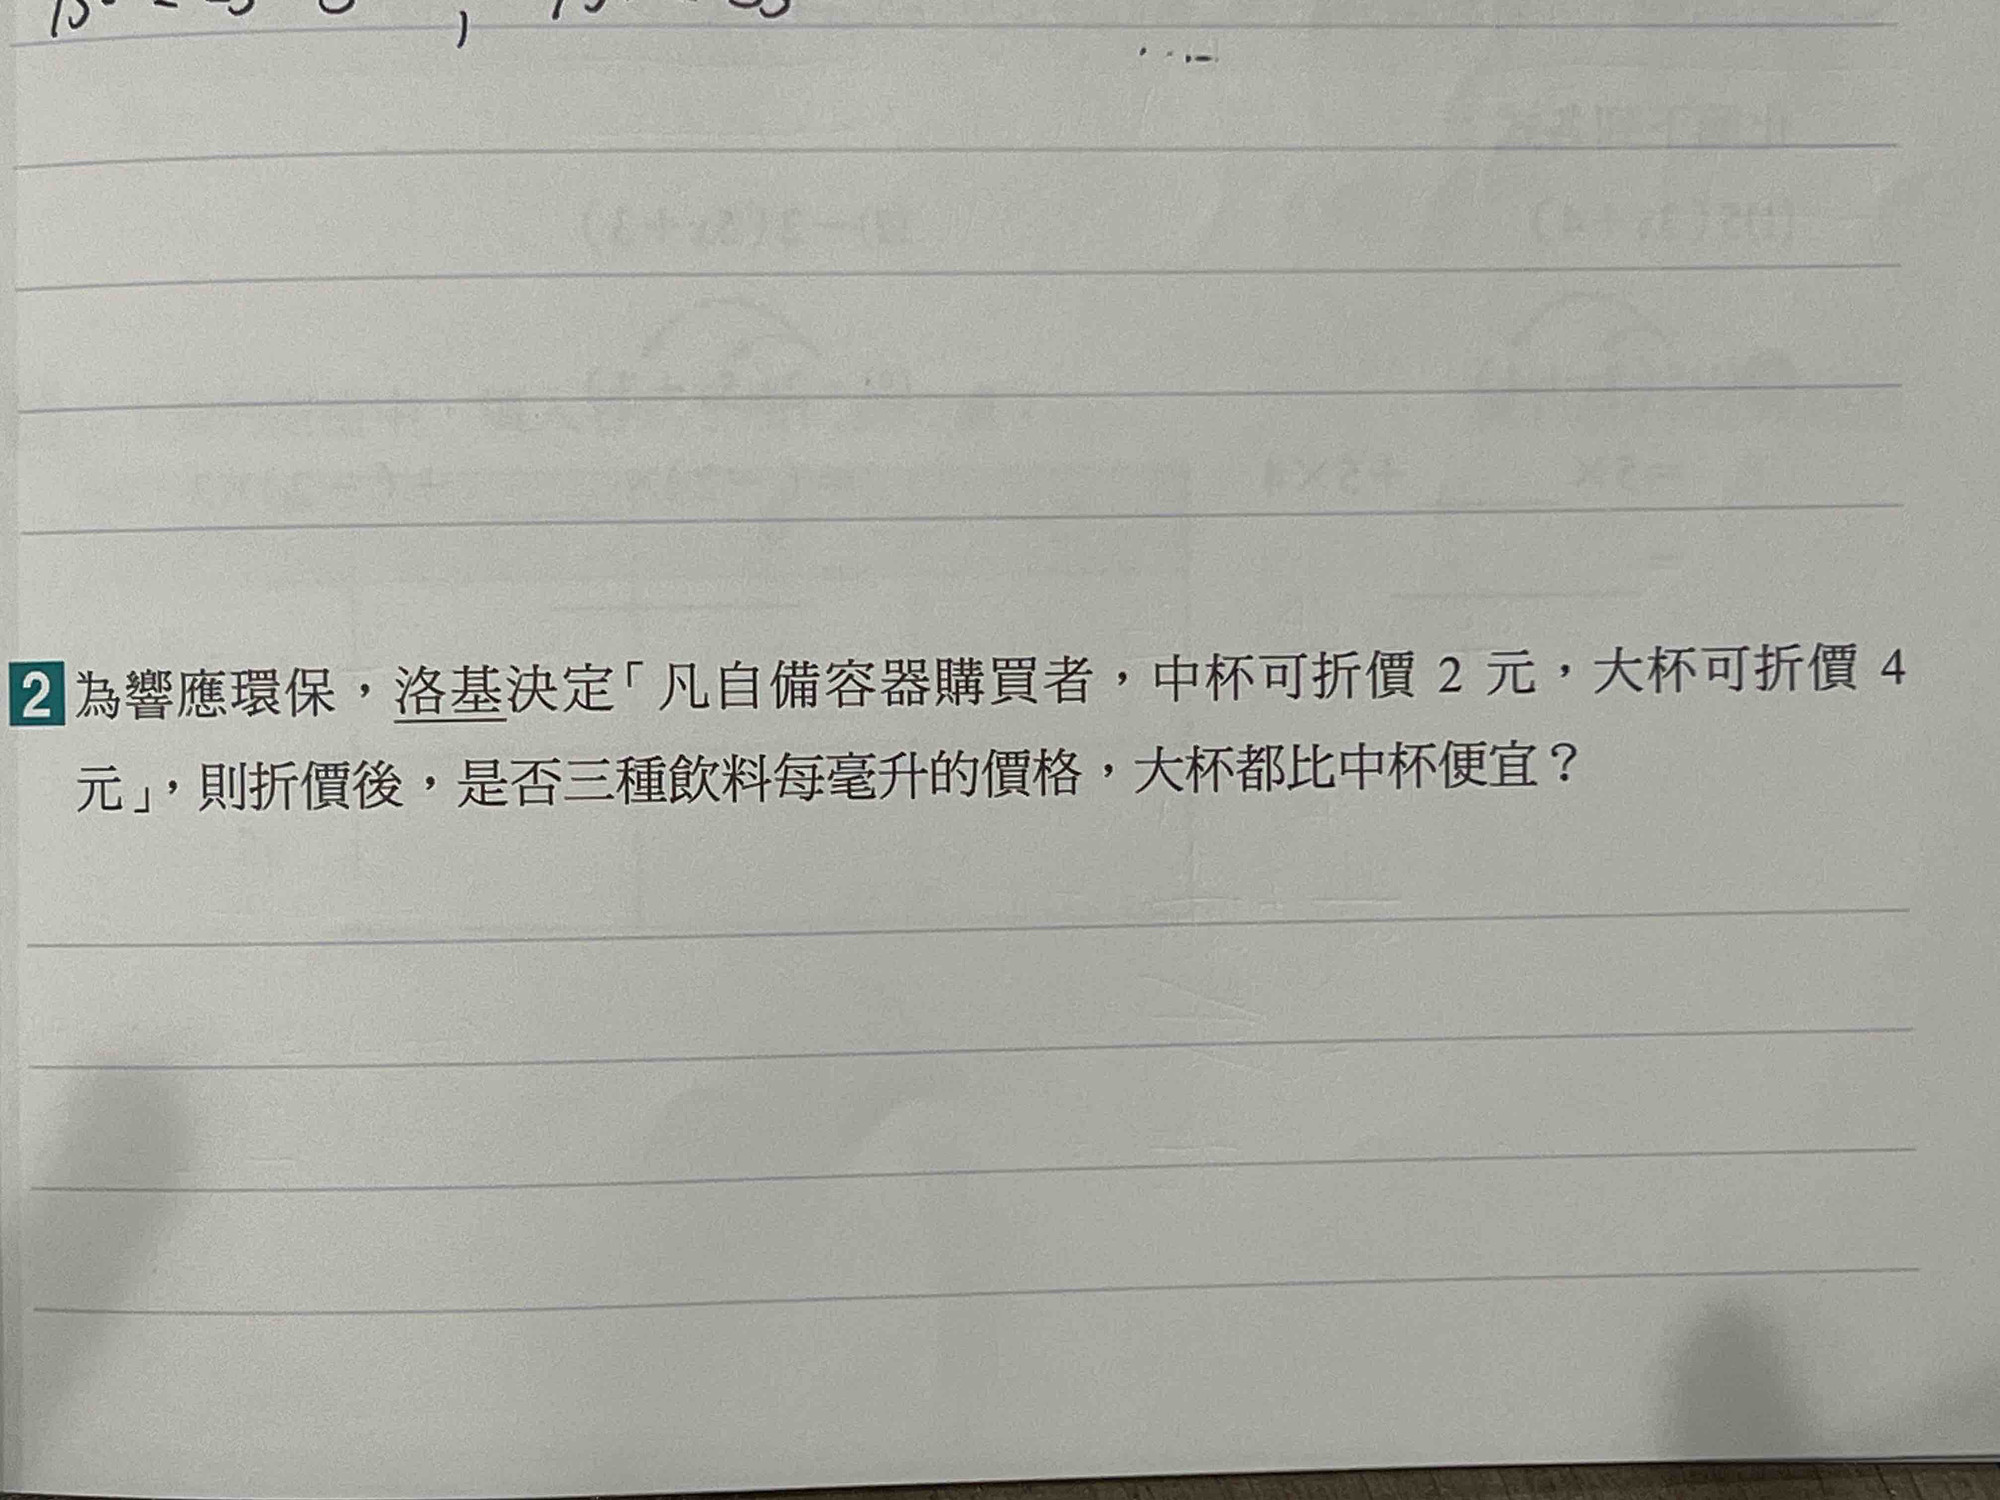 2 為響應環保，洛基決定「凡自備容器購買者，中杯可折價 2 元，大杯可折價 4
元」，則折價後，是否三種飲料每毫升的價格，大杯都比中杯便宜？